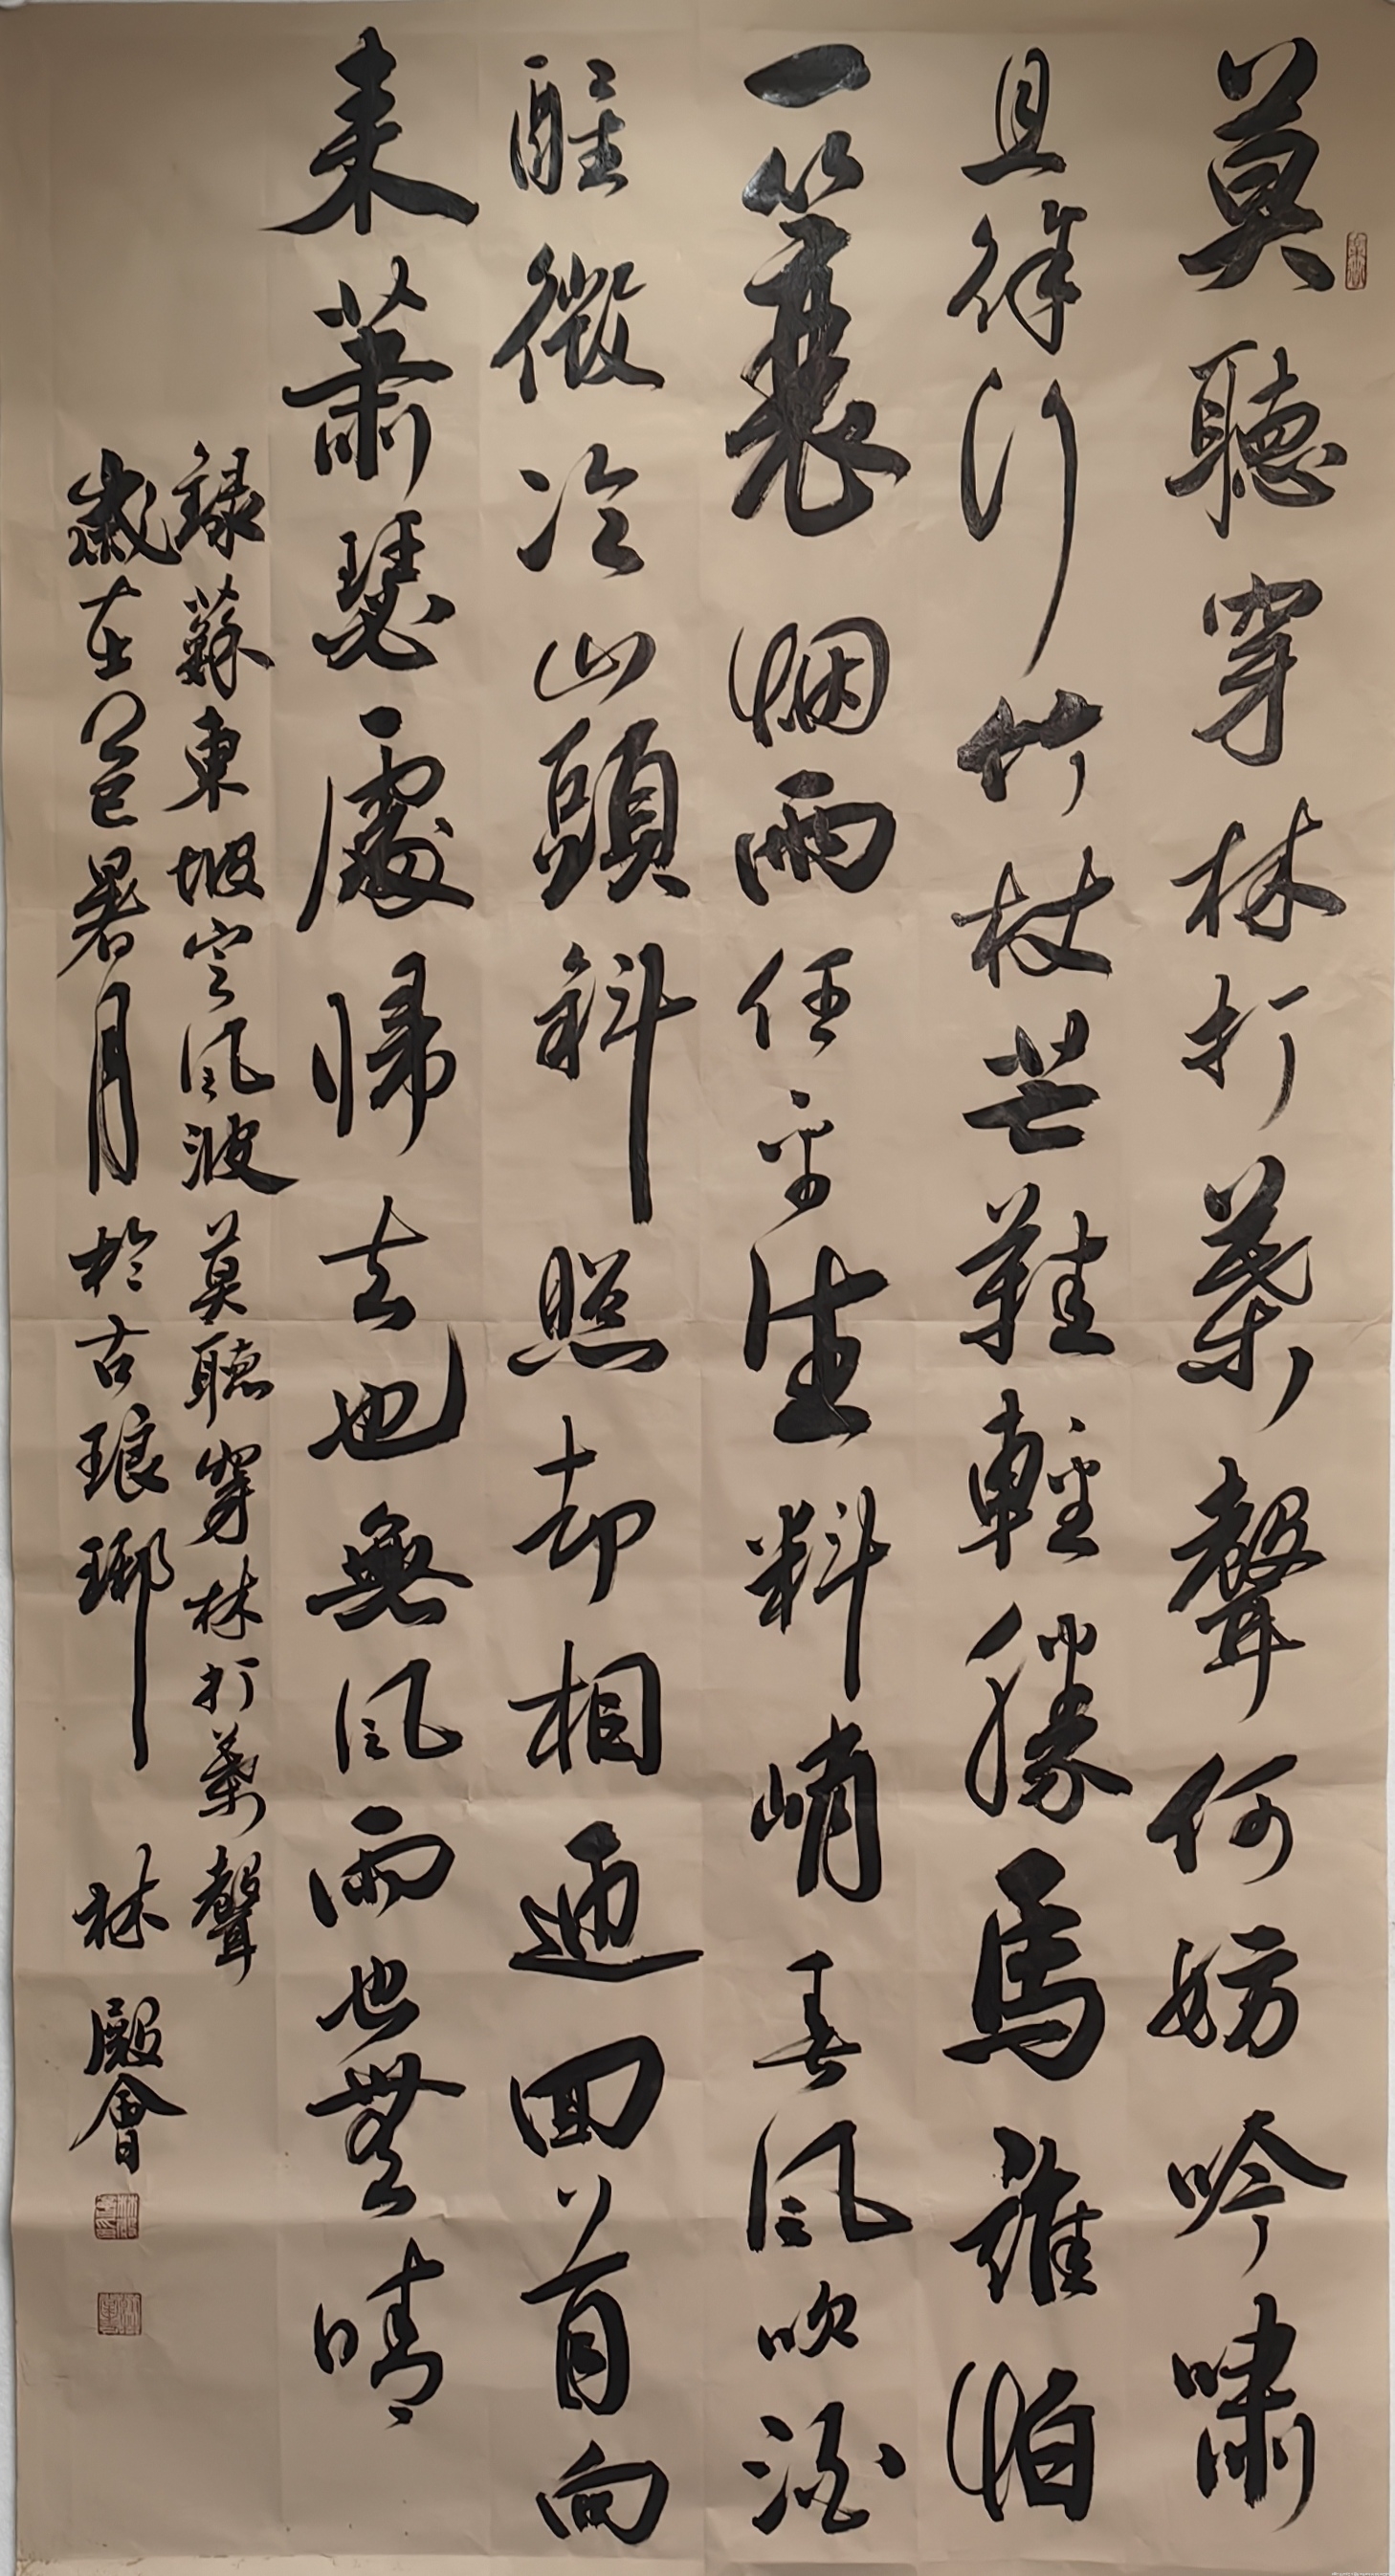 莫聽穿林打葉聲何妨吟嘯
且徐行竹杖芒鞋輕勝馬誰怕
一蓑烟雨任平生料峭春風吹酒
醒微冷山頭斜照却相迎回首向
来蕭瑟處歸去也無風雨也無晴
録蘇東坡定風波莫聽穿林打葉聲
歲在乙巳暑月於古琅琊 林殿會